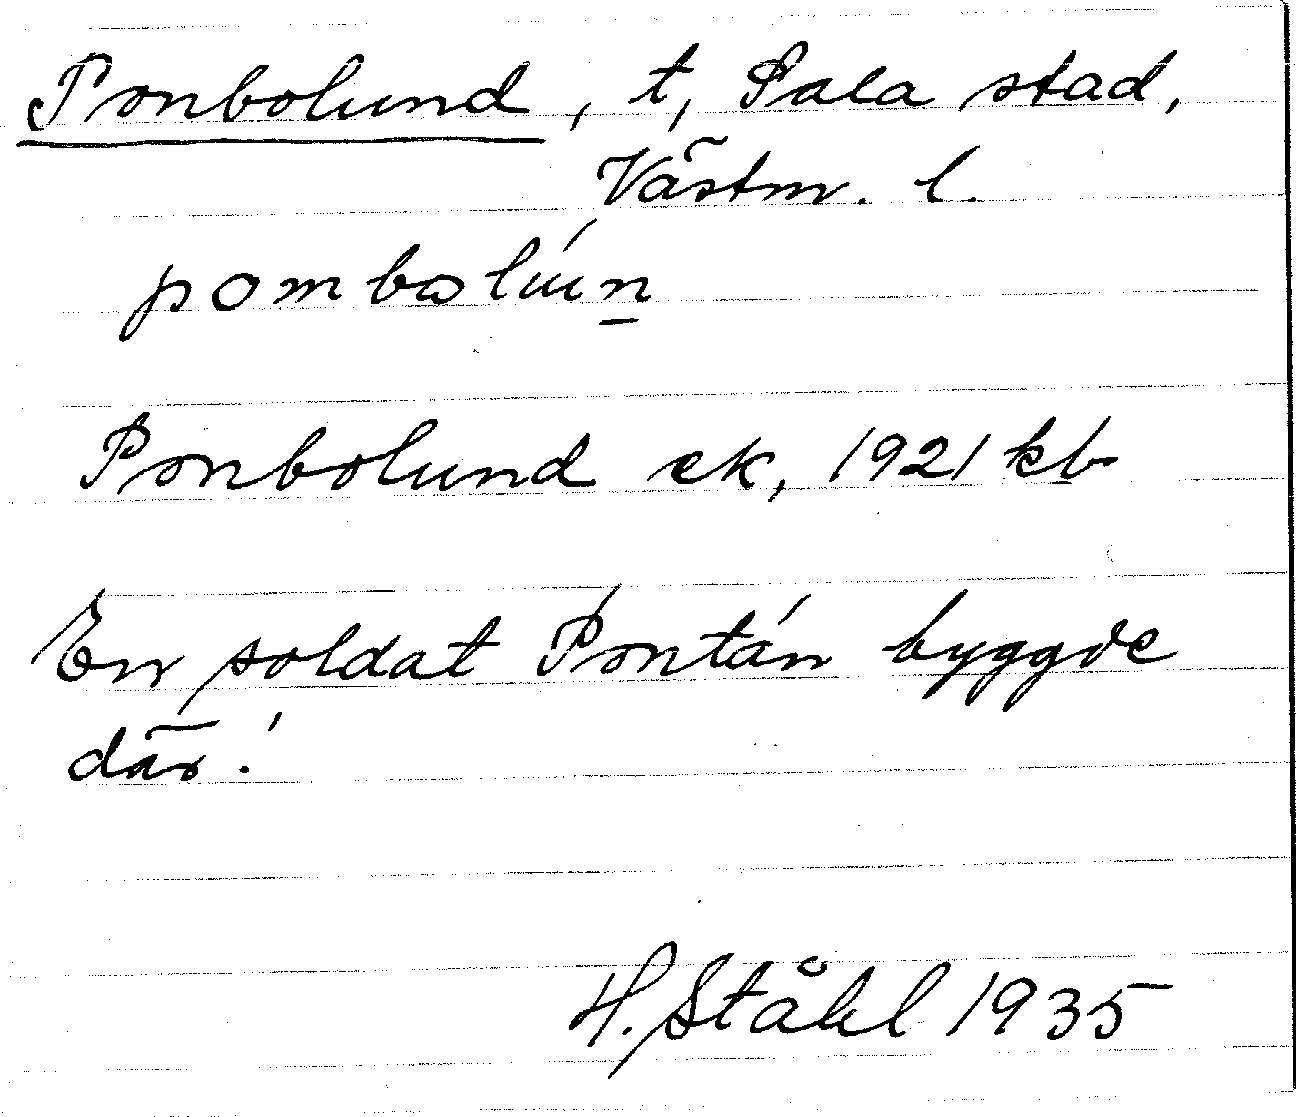 Ponbolund, t, Sala stad,
Västm. l.
pombolún
Ponbolund ek, 1921 kb
En soldat Pontán byggde
där!
H. Ståhl 1935